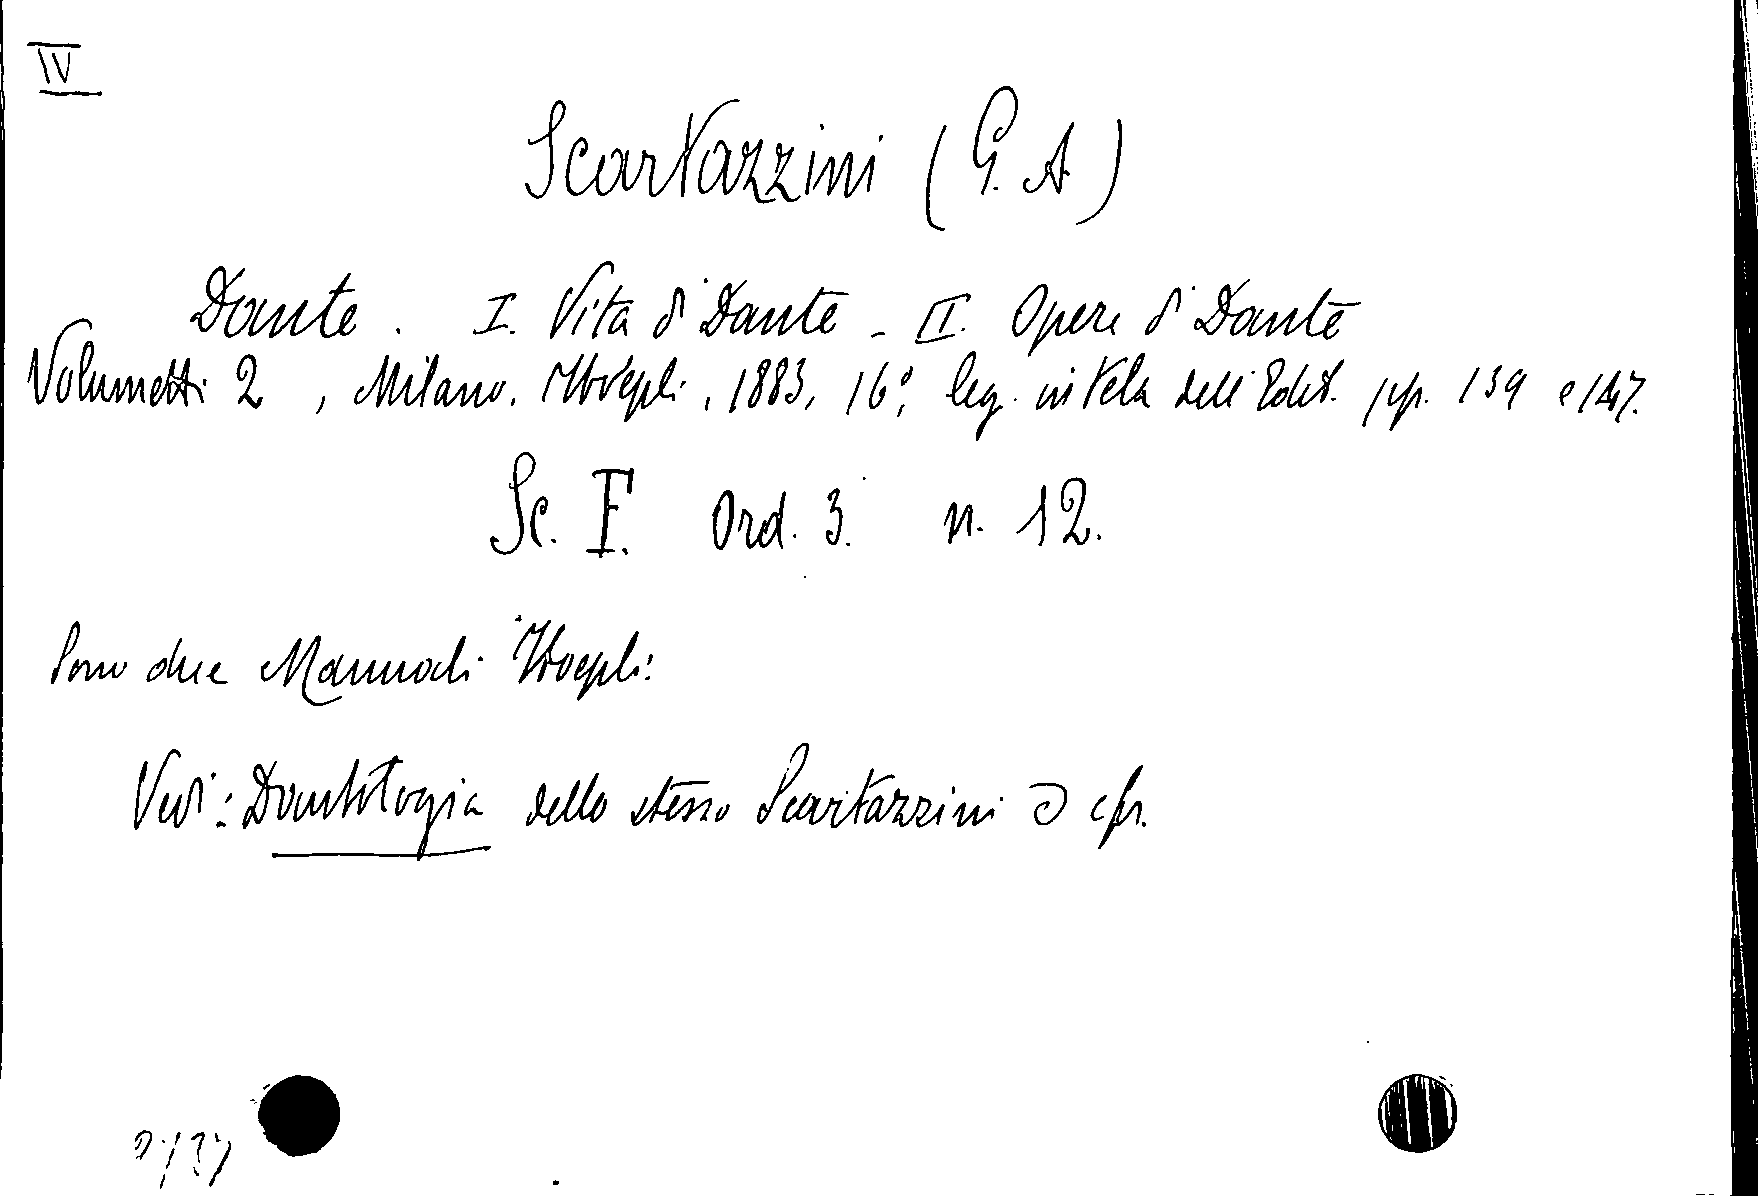 IV
Scartazzini (G. A.)
Dante. I. Vita di Dante - II. Opere di Dante
Volumetti 2, Milano. Hoepli, 1883, 16°, leg. in tela dell'Edit. pp. 139 e 147.
Sc. F. Ord. 3. n. 12.
Sono due Manuali Hoepli:
Vedi: Dantologia dello stesso Scartazzini cfr.